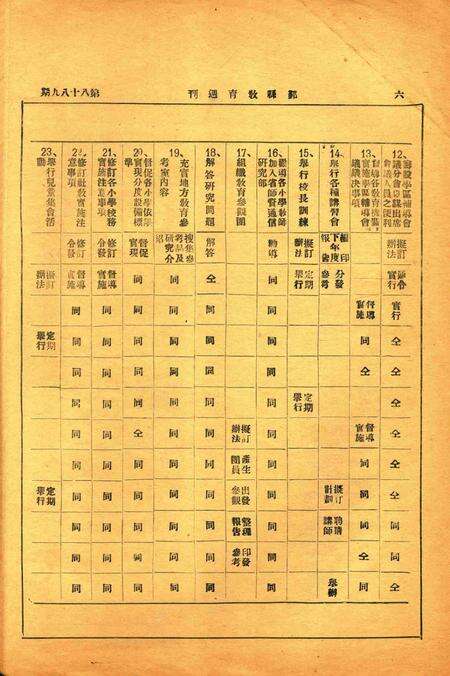 六
鄞縣教育週刊
第八十八九期
12.
會議人員之便利
擬訂
辦法
實行
實行
仝
仝
仝
仝
仝
仝
仝
仝
仝
13.
督導
實施
同
同
督導
實施
同
同
同
仝
同
14.舉行各種講習會
編印
下年度
報告
分發
參考
擬訂
計劃
聘請
講師
舉辦
15.舉行校長訓練
擬訂
辦法
定期
舉行
定期
舉行
16.勸導各小學教師
加入省師資通信
研究部
勸導
同
同
同
同
同
同
同
同
同
同
同
17.組織教育參觀團
擬訂
辦法
產生
團員
出發
參觀
整理
報告
印發
參考
18.解答研究問題
解答
仝
同
同
同
同
同
同
同
同
同
同
19.充實地方教育參
考室內容
搜集參
考品及
研究介
同
同
同
同
同
同
同
同
同
同
同
20.督促各小學依學
實現分度設備標
準
督促
實現
同
同
同
同
同
仝
同
同
同
同
同
21.修訂各小學校務
實施注意事項
修訂
分發
督導
實施
同
同
同
同
同
同
同
同
同
同
22.修訂社教實施注
意事項
修訂
分發
督導
實施
同
同
同
同
同
同
同
同
同
同
23.舉行兒童集會活
動
擬訂
辦法
定期
舉行
定期
舉行